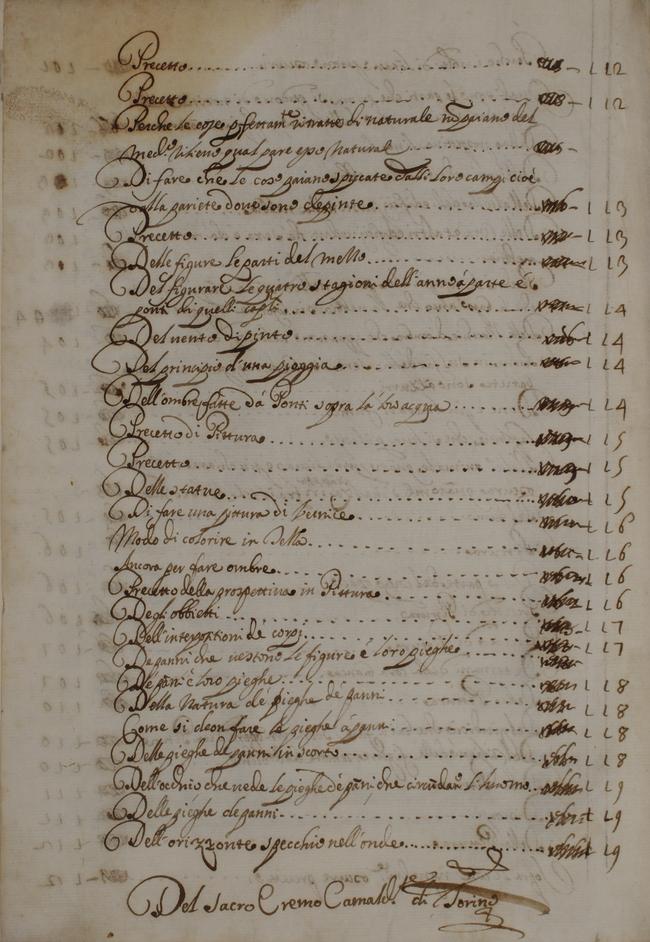 Precetto. 112
Precetto. 112
Perche le cose p̱fettam.te ritratte di naturale nō paiano del
med.o rilievo qual pare esso Naturale
Di fare che le cose paiano spiccate dalli loro campi cioè
dalla pariete dove sono depinte. 113
Precetto. 113
Delle figure le parti del mezzo. 113
Del figurare le quatro stagioni dell'anno ò parte é
ponti di quelli capli. 114
Del vento dipinto 114
Del principio d'una pioggia. 114
Dell'ombre fatte dà Ponti sopra la loro acqua 114
Precetto di Pittura. 115
Precetto. 115
Delle statue 115
Di fare una pittura di Vernice. 116
Modo di colorire in Tella. 116
Ancora per fare ombre. 116
Precetto della prospettiva in Pittura 116
Degli obbietti 117
Dell'interpositioni de corpi 117
De panni che vestono le figure é loro pieghe
De pani é loro pieghe 118
Della Natura dé pieghe de panni 118
Come si deon fare le pieghe à panni 118
Delle pieghe de panni in scorto 118
Dell'occhio che vede le pieghe dé pāni che circūdano l'huomo. 119
Delle pieghe de panni. 119
Dell'orizzonte specchio nell'onde 119
Del Sacro Eremo Camald.e di Torino